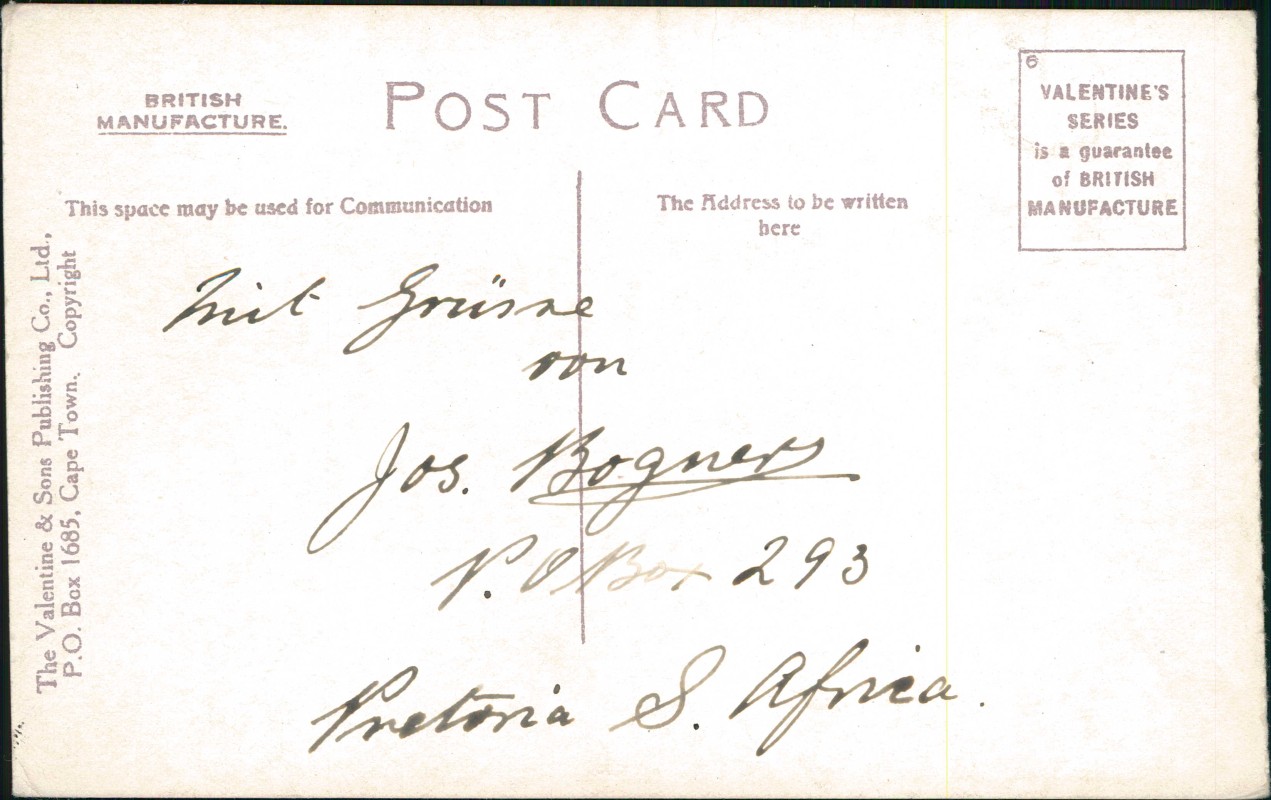 BRITISH
MANUFACTURE.
POST CARD
6
VALENTINE'S
SERIES
is a guarantee
of BRITISH
MANUFACTURE
This space may be used for Communication
The Address to be written
here
The Valentine & Sons Publishing Co., Ltd.,
P.O. Box 1685, Cape Town. Copyright
Mit Grüsse
von
Jos. Bogners
P.O Box 293
Pretoria S. Africa.